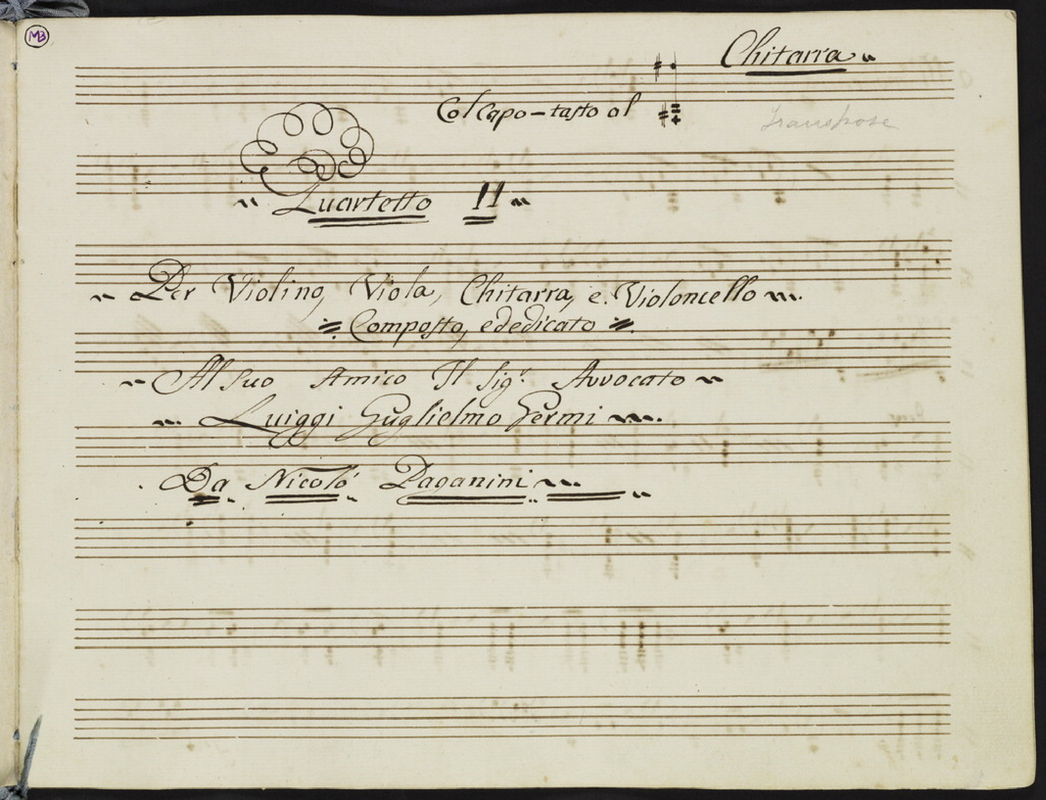 MB
Chitarra
Col Capo-tasto al
Transpose
Quartetto 11
Per Violino, Viola, Chitarra, e. Violoncello
Composto, e dedicato
Al Suo Amico Il Sigr. Avvocato
Luiggi Guglielmo Germi
Da Nicoló Paganini